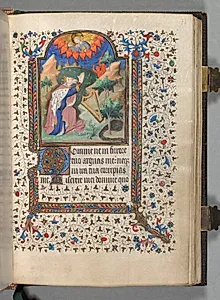 Domine ne in furore
tuo arguas me: neq3
in ira tua corripias
me. Miserere mei domine quo